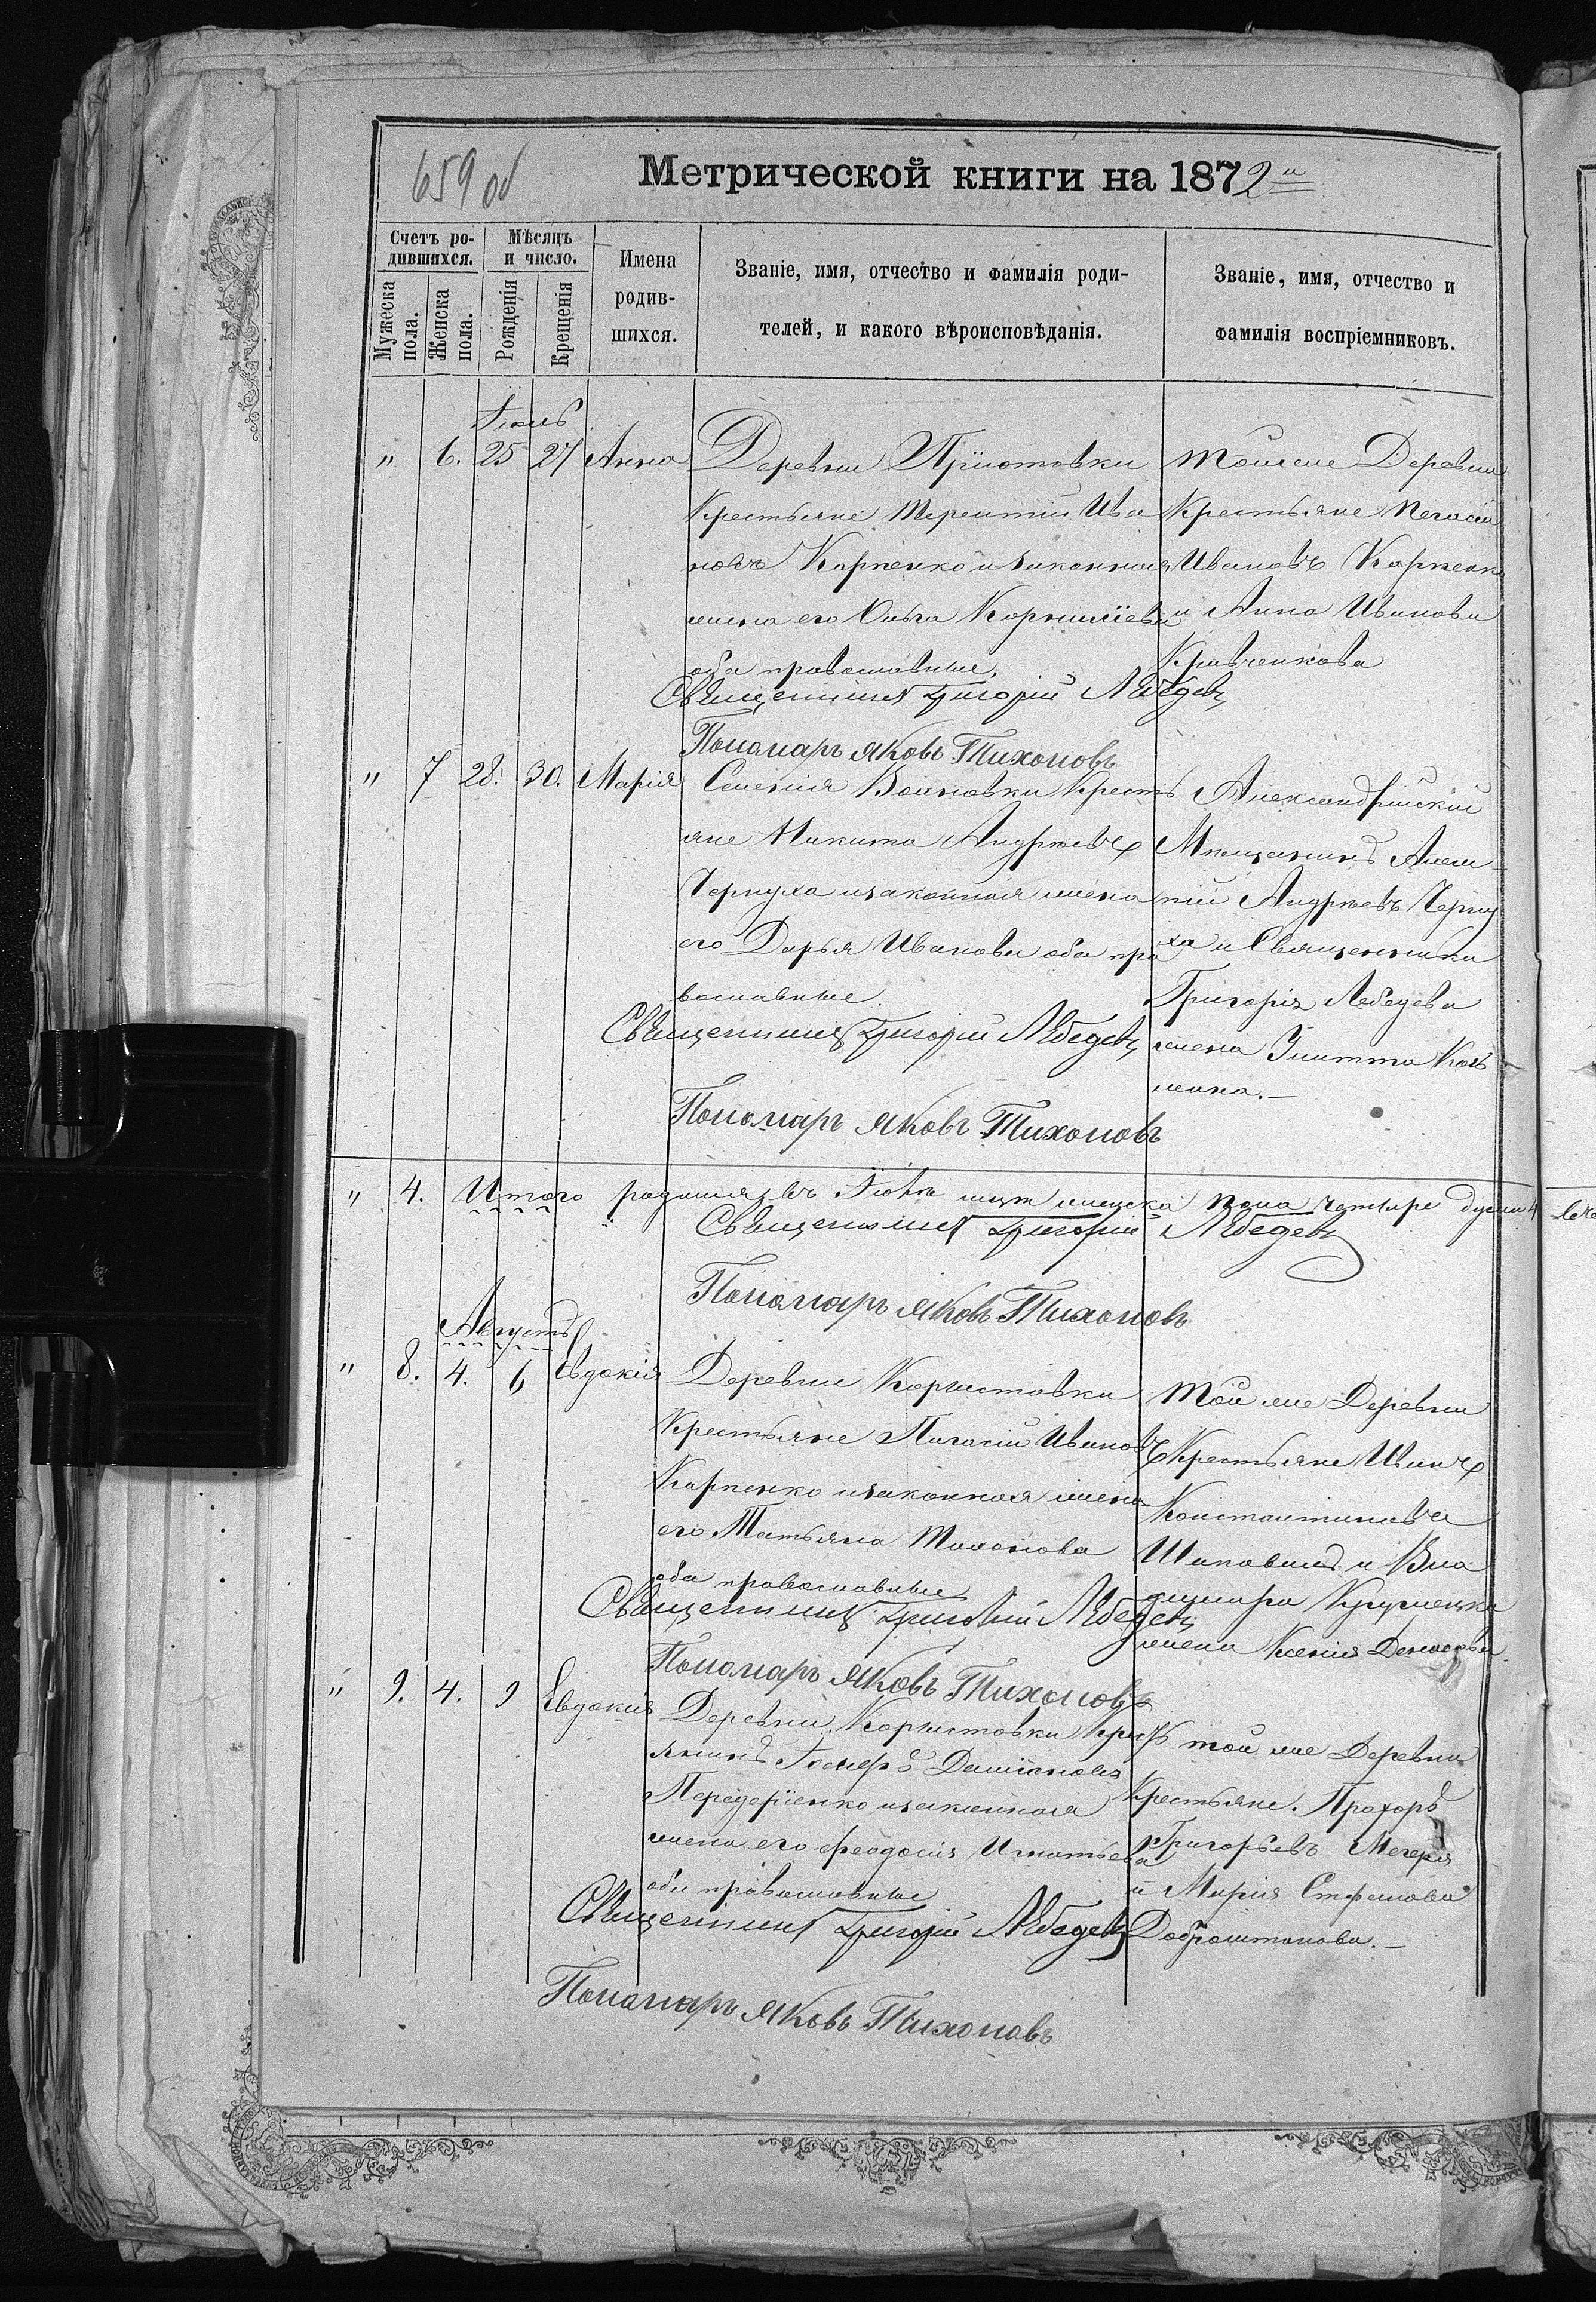 659 об
Метрической книги на 1872 й
Счетъ ро-
дившихся.
Мужеска
пола.
Женска
пола.
Мѣсяцъ
и число.
Рожденія
Крещенія
Имена
родив-
шихся.
Званіе, имя, отчество и фамилія роди-
телей, и какого вѣроисповѣданія.
Званіе, имя, отчество и
фамилія воспріемниковъ.
" 6. 25 27 Анна
Деревни
Крестьяне Терентій Ива
новъ Карпенко и законная
жена его Ольга Корниліева
оба православные.
тойже Деревни
Крестьяне
Ивановъ Карпенко
и Анна Иванова
Кравченкова
Священникъ Григорій Лебедевъ
Пономарь Яковъ Тихоновъ
" 7 28. 30. Марія
Селенія Войновки Кресть
яне Никита Андреевъ
Чернуха и законная жена
его Дарья Иванова оба пра
вославные.
Александрійскій
Мещанинъ
Андреевъ Черну
ха и Священника
Григорія Лебедева
жена
Священникъ Григорій Лебедевъ
Пономарь Яковъ Тихоновъ
" 4. Итого пола четыре души 4
Священникъ Григорій Лебедевъ
Пономарь Яковъ Тихоновъ
Августъ
" 8. 4. 6 Евдокія
Деревни Користовки
Крестьяне Ивановъ
Карпенко и законная жена
его Татьяна
оба православные
той же Деревни
Крестьяне Иванъ
Константиновъ
Шаповалъ и Вла
димира
жена Ксенія
Священникъ Григорій Лебедевъ
Пономарь Яковъ Тихоновъ
" 9. 4. 9 Евдокія
Деревни Користовки Крест
янинъ Іосифъ Даміановъ
Передеріенко и законная
жена его Феодосія Игнатьева
оба православные
той же Деревни
Крестьяне. Прохоръ
Григорьевъ
и Марія Стефанова
Священникъ Григорій Лебедевъ
Пономарь Яковъ Тихоновъ